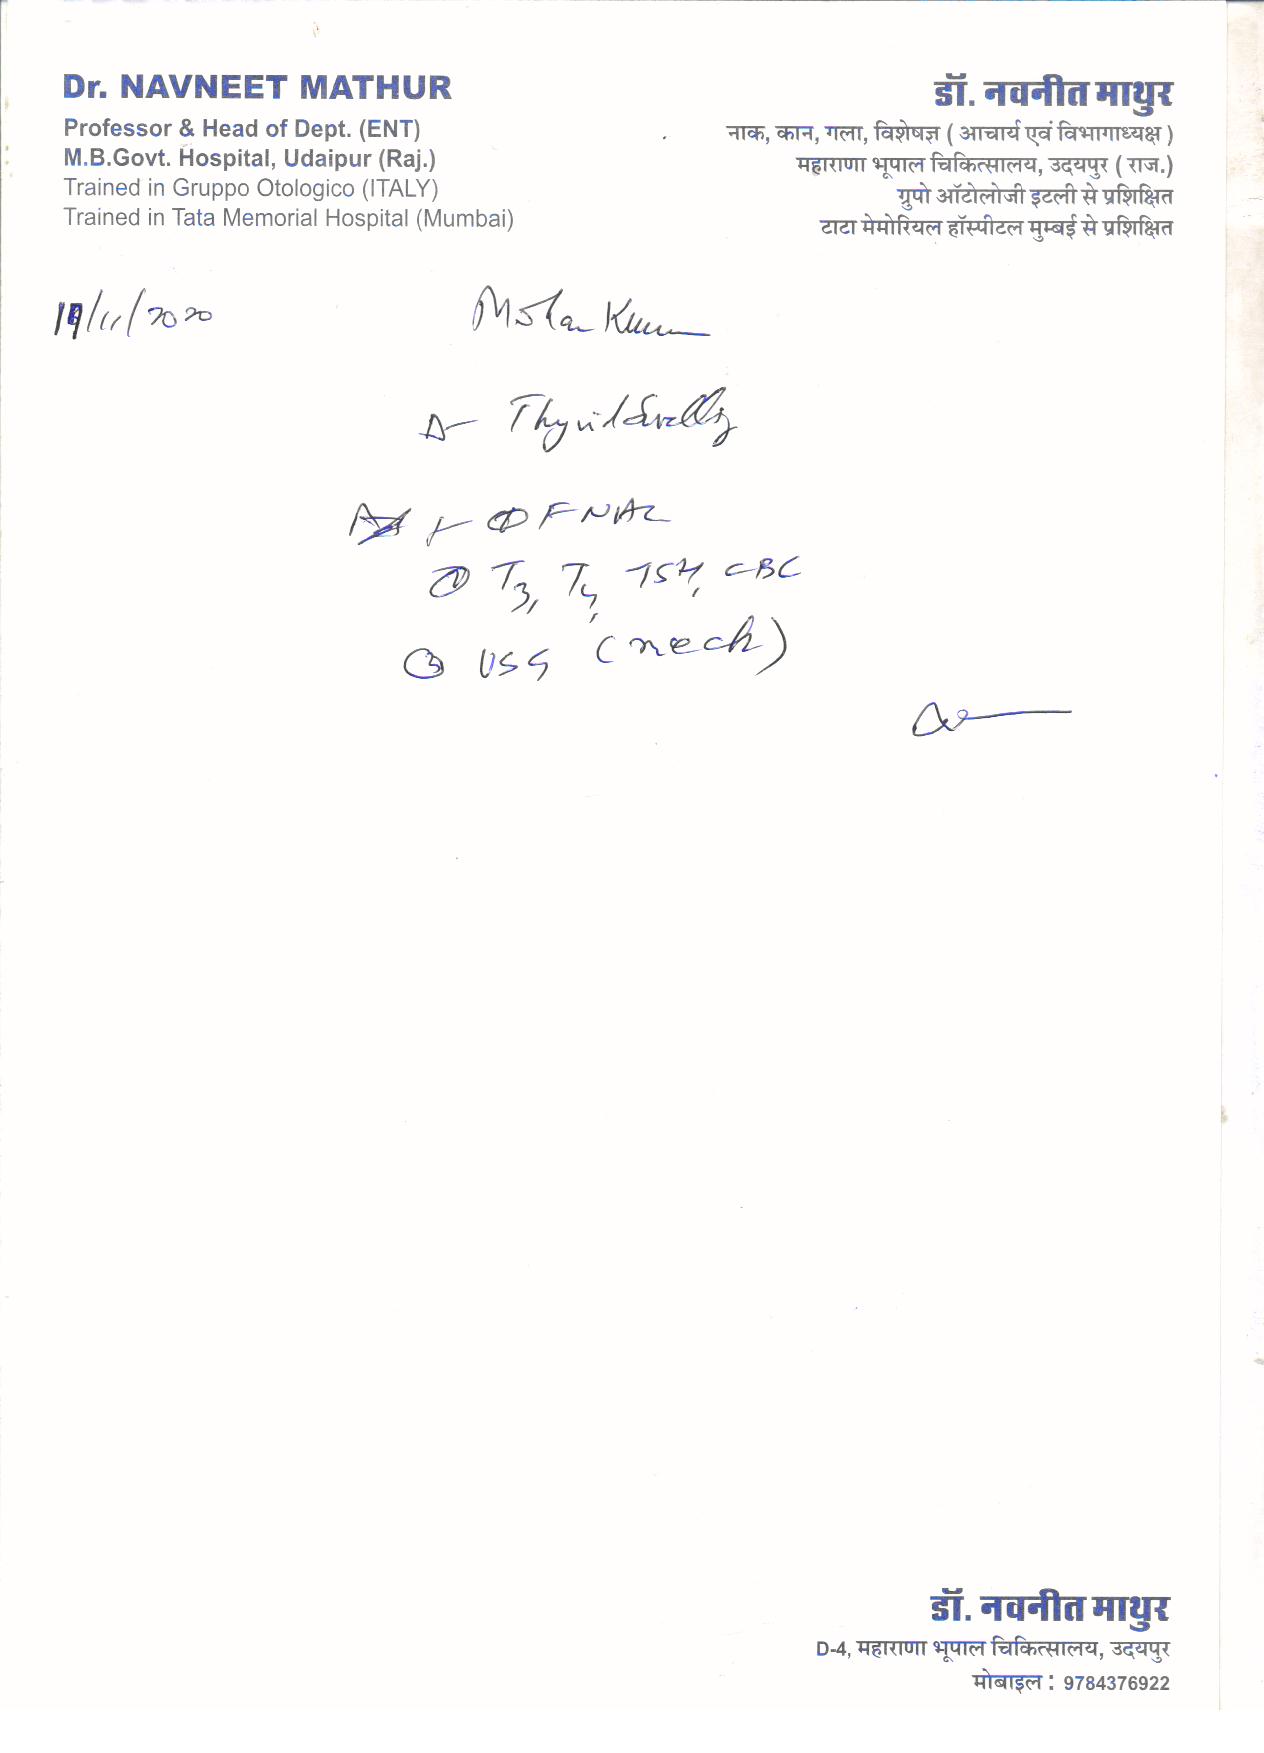 Dr. NAVNEET MATHUR
Professor & Head of Dept. (ENT)
M.B.Govt. Hospital, Udaipur (Raj.)
Trained in Gruppo Otologico (ITALY)
Trained in Tata Memorial Hospital (Mumbai)
डॉ. नवनीत माथुर
नाक, कान, गला, विशेषज्ञ ( आचार्य एवं विभागाध्यक्ष )
महाराणा भूपाल चिकित्सालय, उदयपुर ( राज.)
ग्रुपो ऑटोलोजी इटली से प्रशिक्षित
टाटा मेमोरियल हॉस्पीटल मुम्बई से प्रशिक्षित
/11/2020
Δ Thyroid Swelling
① FNAC
② T3, T4, TSH, CBC
③ USG (neck)
डॉ. नवनीत माथुर
D-4, महाराणा भूपाल चिकित्सालय, उदयपुर
मोबाइल : 9784376922